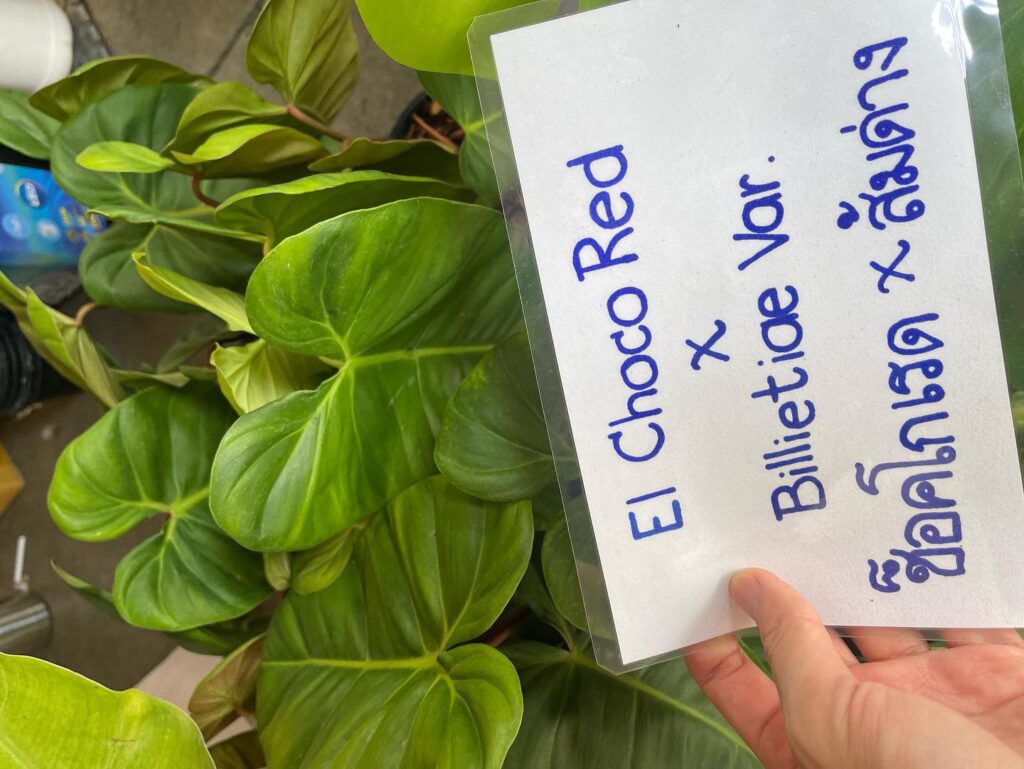 El Choco Red
x
Billietiae Var.
ช็อคโกเรด x ส้มด่าง